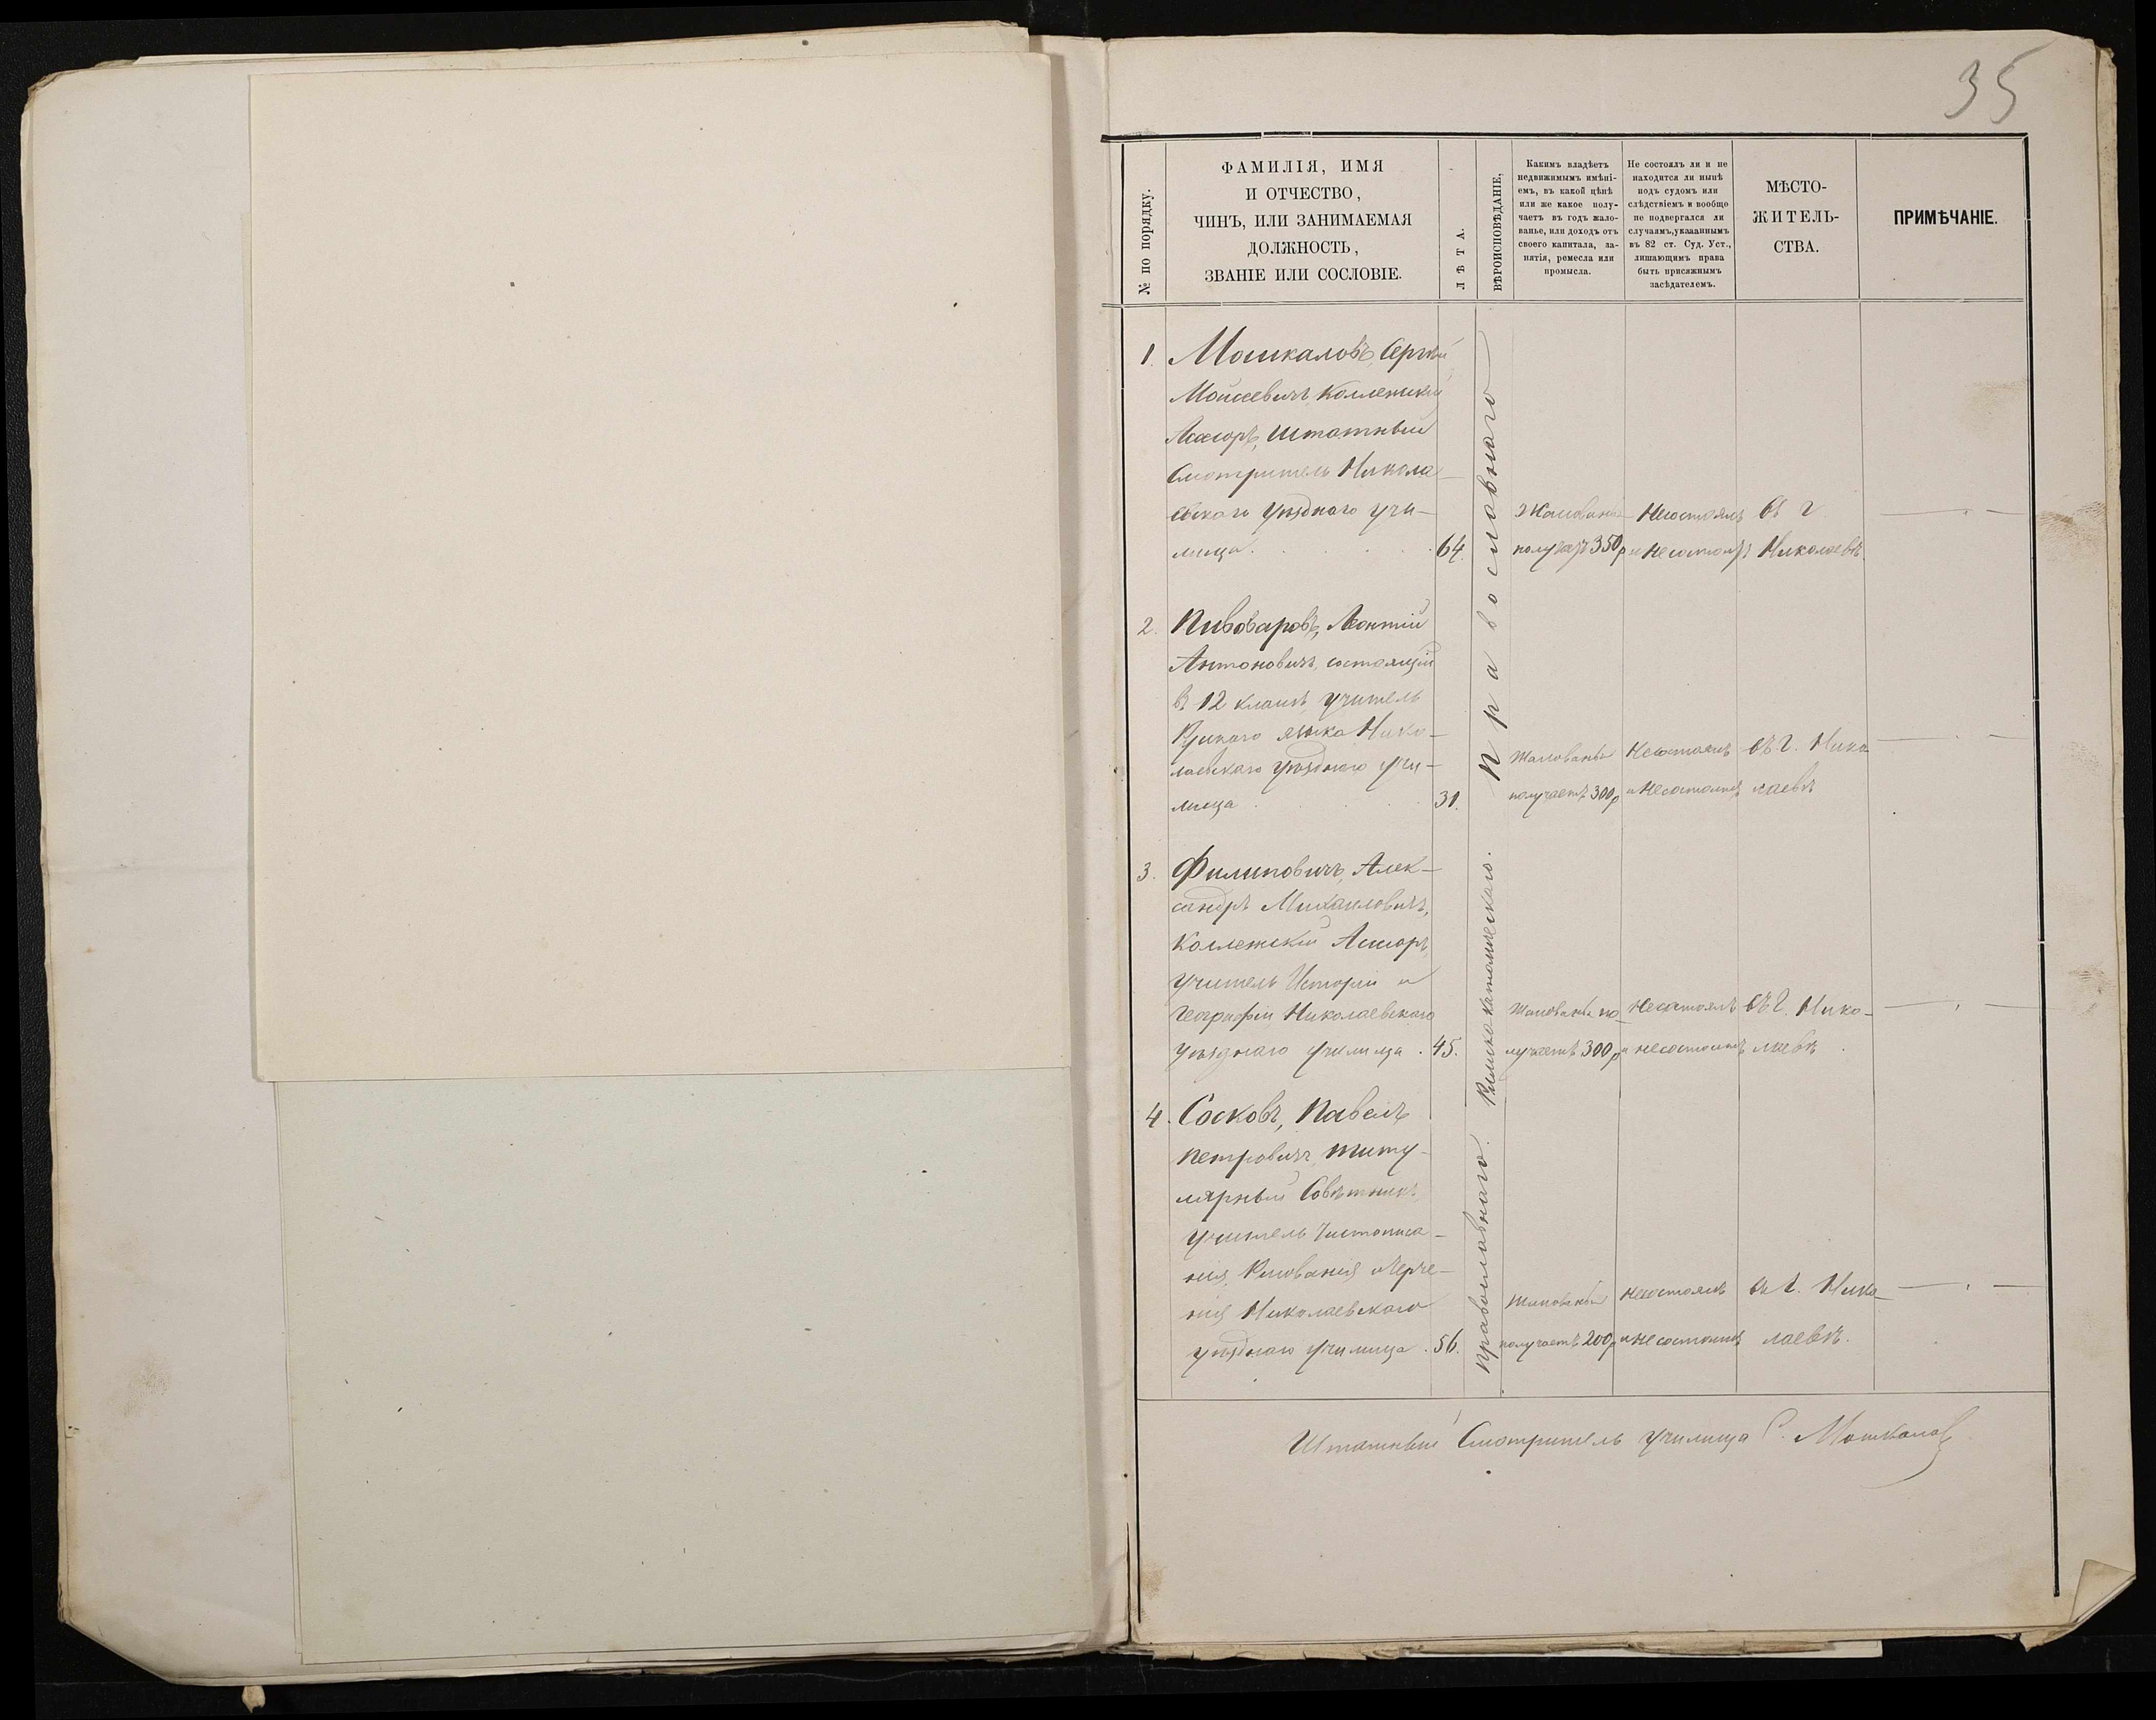 35
№ ПО ПОРЯДКУ.
ФАМИЛІЯ, ИМЯ
И ОТЧЕСТВО,
ЧИНЪ, ИЛИ ЗАНИМАЕМАЯ
ДОЛЖНОСТЬ,
ЗВАНІЕ ИЛИ СОСЛОВІЕ.
ЛѢТА.
ВѢРОИСПОВѢДАНІЕ,
Какимъ владѣетъ
недвижимымъ имѣні-
емъ, въ какой цѣнѣ
или же какое полу-
чаетъ въ годъ жало-
ванье, или доходъ отъ
своего капитала, за-
нятія, ремесла или
промысла.
Не состоялъ ли и не
находится ли нынѣ
подъ судомъ или
слѣдствіемъ и вообще
не подвергался ли
случаямъ, указаннымъ
въ 82 ст. Суд. Уст.,
лишающимъ права
быть присяжнымъ
засѣдателемъ.
МѢСТО-
ЖИТЕЛЬ-
СТВА.
ПРИМѢЧАНІЕ.
1. Машкаловъ, Сергѣй
Моисеевичъ, Коллежскій
Асесоръ, Штатный
Смотритель Никола
евскаго Уѣзднаго учи-
лища. 64.
Православнаго
Жалованья
получаетъ 350 р
Несостоялъ
и несостоитъ
въ г.
Николаевѣ.
2. Пивоваровъ, Леонтій
Антоновичъ, состоящій
въ 12 классѣ, учитель
Рускаго языка Нико-
лаевскаго уѣзднаго учи-
лища 31.
Жалованья
получаетъ 300 р
Несостоялъ
и несостоитъ
въ г. Нико
лаевѣ
3. Филиповичъ, Алек-
сандръ Михаиловичъ,
Коллежскій Ассесоръ,
учитель Исторіи и
Географіи Николаевскаго
уѣзднаго училища. 45.
Римскокатолическаго.
Жалованья по-
лучаетъ 300 р
Несостоялъ
и несостоитъ
въ г. Нико-
лаевѣ
4. Сосковъ, Павелъ
Петровичъ, титу-
лярный Совѣтникъ
учитель Чистописа-
нія, Рисованія и Черче-
нія Николаевскаго
уѣзднаго училища. 56.
Православнаго.
Жалованья
получаетъ 200 р
Несостоялъ
и несостоитъ
въ г. Нико-
лаевѣ.
Штатный Смотритель училища С. Машкаловъ